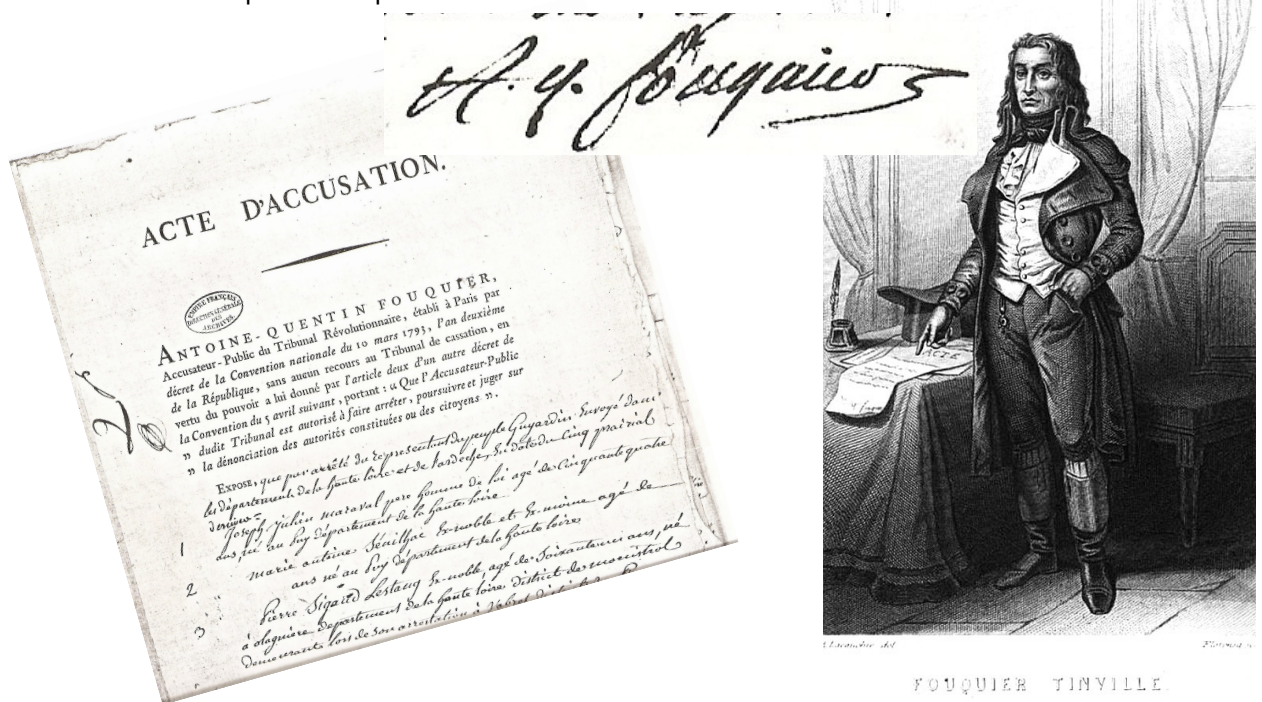 A. Q. Fouquier
ACTE D'ACCUSATION.
EMPIRE FRANÇAIS
DIRECTION GÉNÉRALE
DES
ARCHIVES
ANTOINE-QUENTIN FOUQUIER,
Accusateur-Public du Tribunal Révolutionnaire, établi à Paris par
décret de la Convention nationale du 10 mars 1793, l'an deuxième
de la République, sans aucun recours au Tribunal de cassation, en
vertu du pouvoir a lui donné par l'article deux d'un autre décret de
la Convention du 5 avril suivant, portant : « Que l'Accusateur-Public
» dudit Tribunal est autorisé à faire arrêter, poursuivre et juger sur
» la dénonciation des autorités constituées ou des citoyens ».
EXPOSE, que par arrêté du Représentant du peuple Guyardin Envoyé dans
les départements de la haute loire et de l'ardeche, En date du Cinq prairial
dernier
1 Joseph Julien maraval pere homme de loi agé de Cinquante quatre
ans, né au Puy département de la haute loire
2 marie antoine Sénilhac Ex-noble et Ex-moine agé de
ans né au Puy département de la haute loire
3 Pierre Sigaud Lestang Ex-noble, agé de Soixante ans, né
à departement de la haute loire district de monistrol
demeurant lors de son arrestation à
ACTE
Lacauchie del.
FOUQUIER TINVILLE.